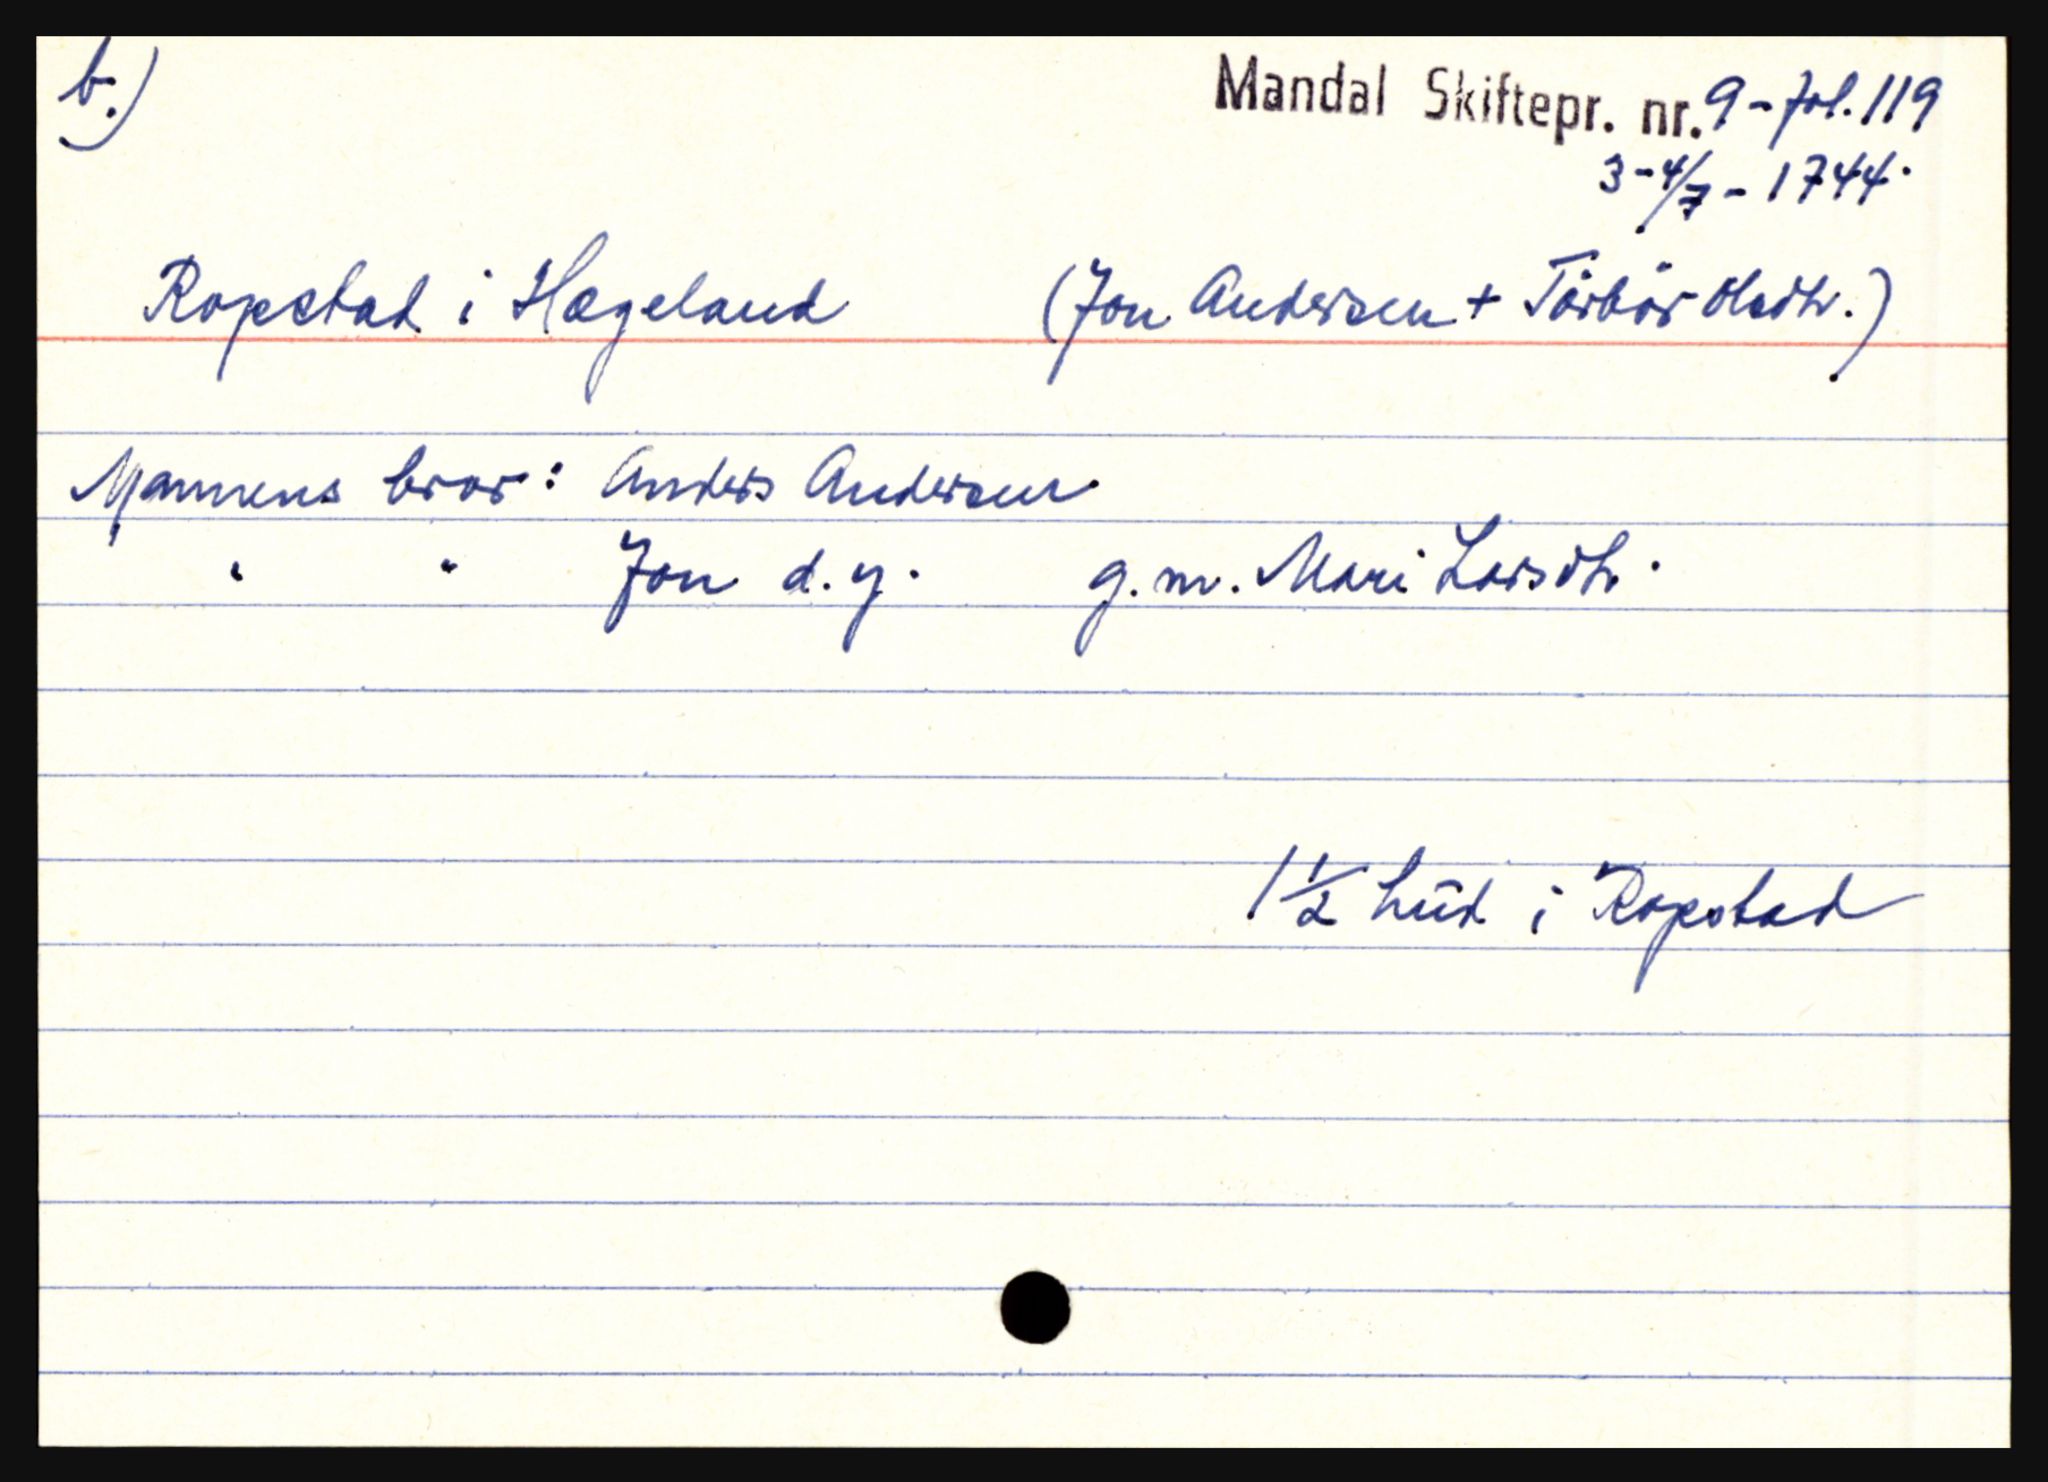 b.)
Mandal Skiftepr. nr. 9 - fol. 119
3-4/7 - 1744.
Ropstad i Hægeland (Jon Andersen + Tørbør Olsdtr.)
Mannens bror: Anders Andersen
" " Jon d. y. g. m. Mari Larsdtr.
1 1/2 hud i Ropstad